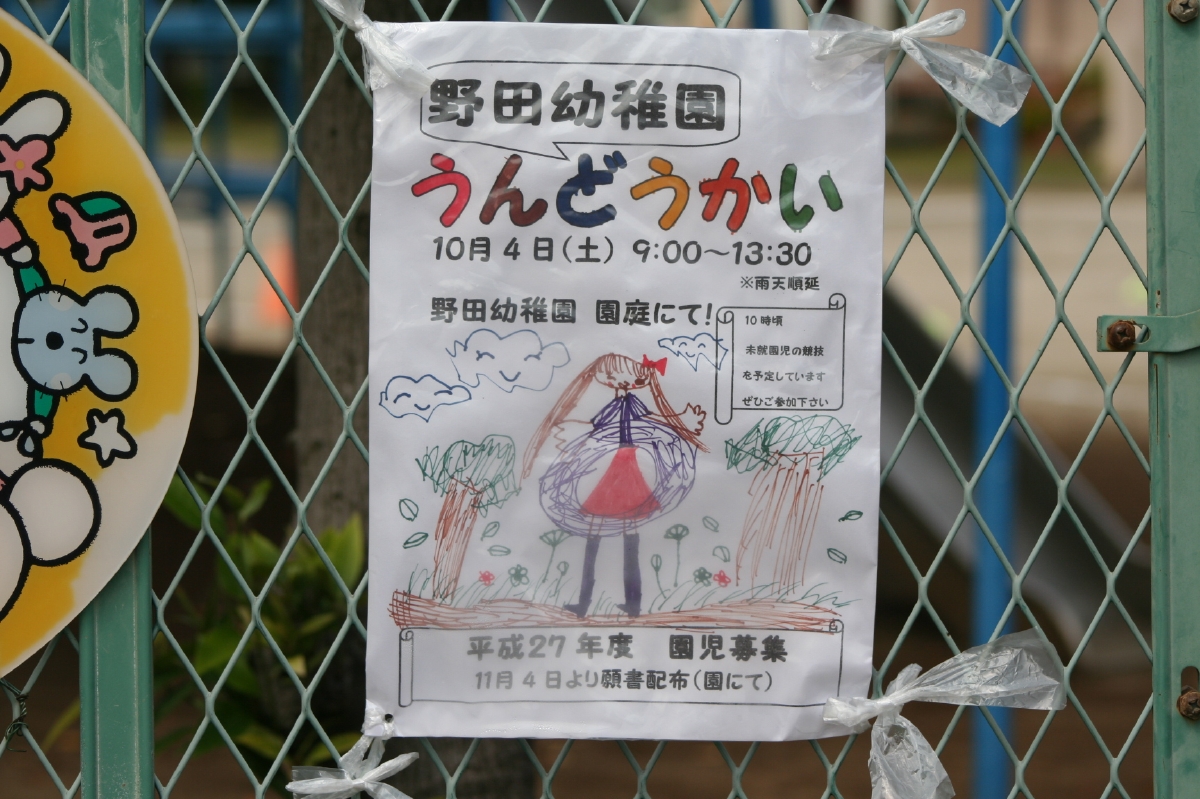 野田幼稚園
うんどうかい
10月4日(土) 9:00〜13:30
※雨天順延
野田幼稚園 園庭にて!
10時頃
未就園児の競技
を予定しています
ぜひご参加下さい
平成27年度 園児募集
11月4日より願書配布(園にて)